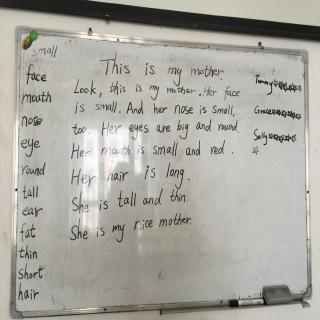 small
face
mouth
nose
eye
round
tall
ear
fat
thin
short
hair
This is my mother
Look, this is my mother. Her face
is small. And her nose is small,
too. Her eyes are big and round.
Her mouth is small and red.
Her hair is long.
She is tall and thin.
She is my nice mother.
Tommy
Grace
Sally